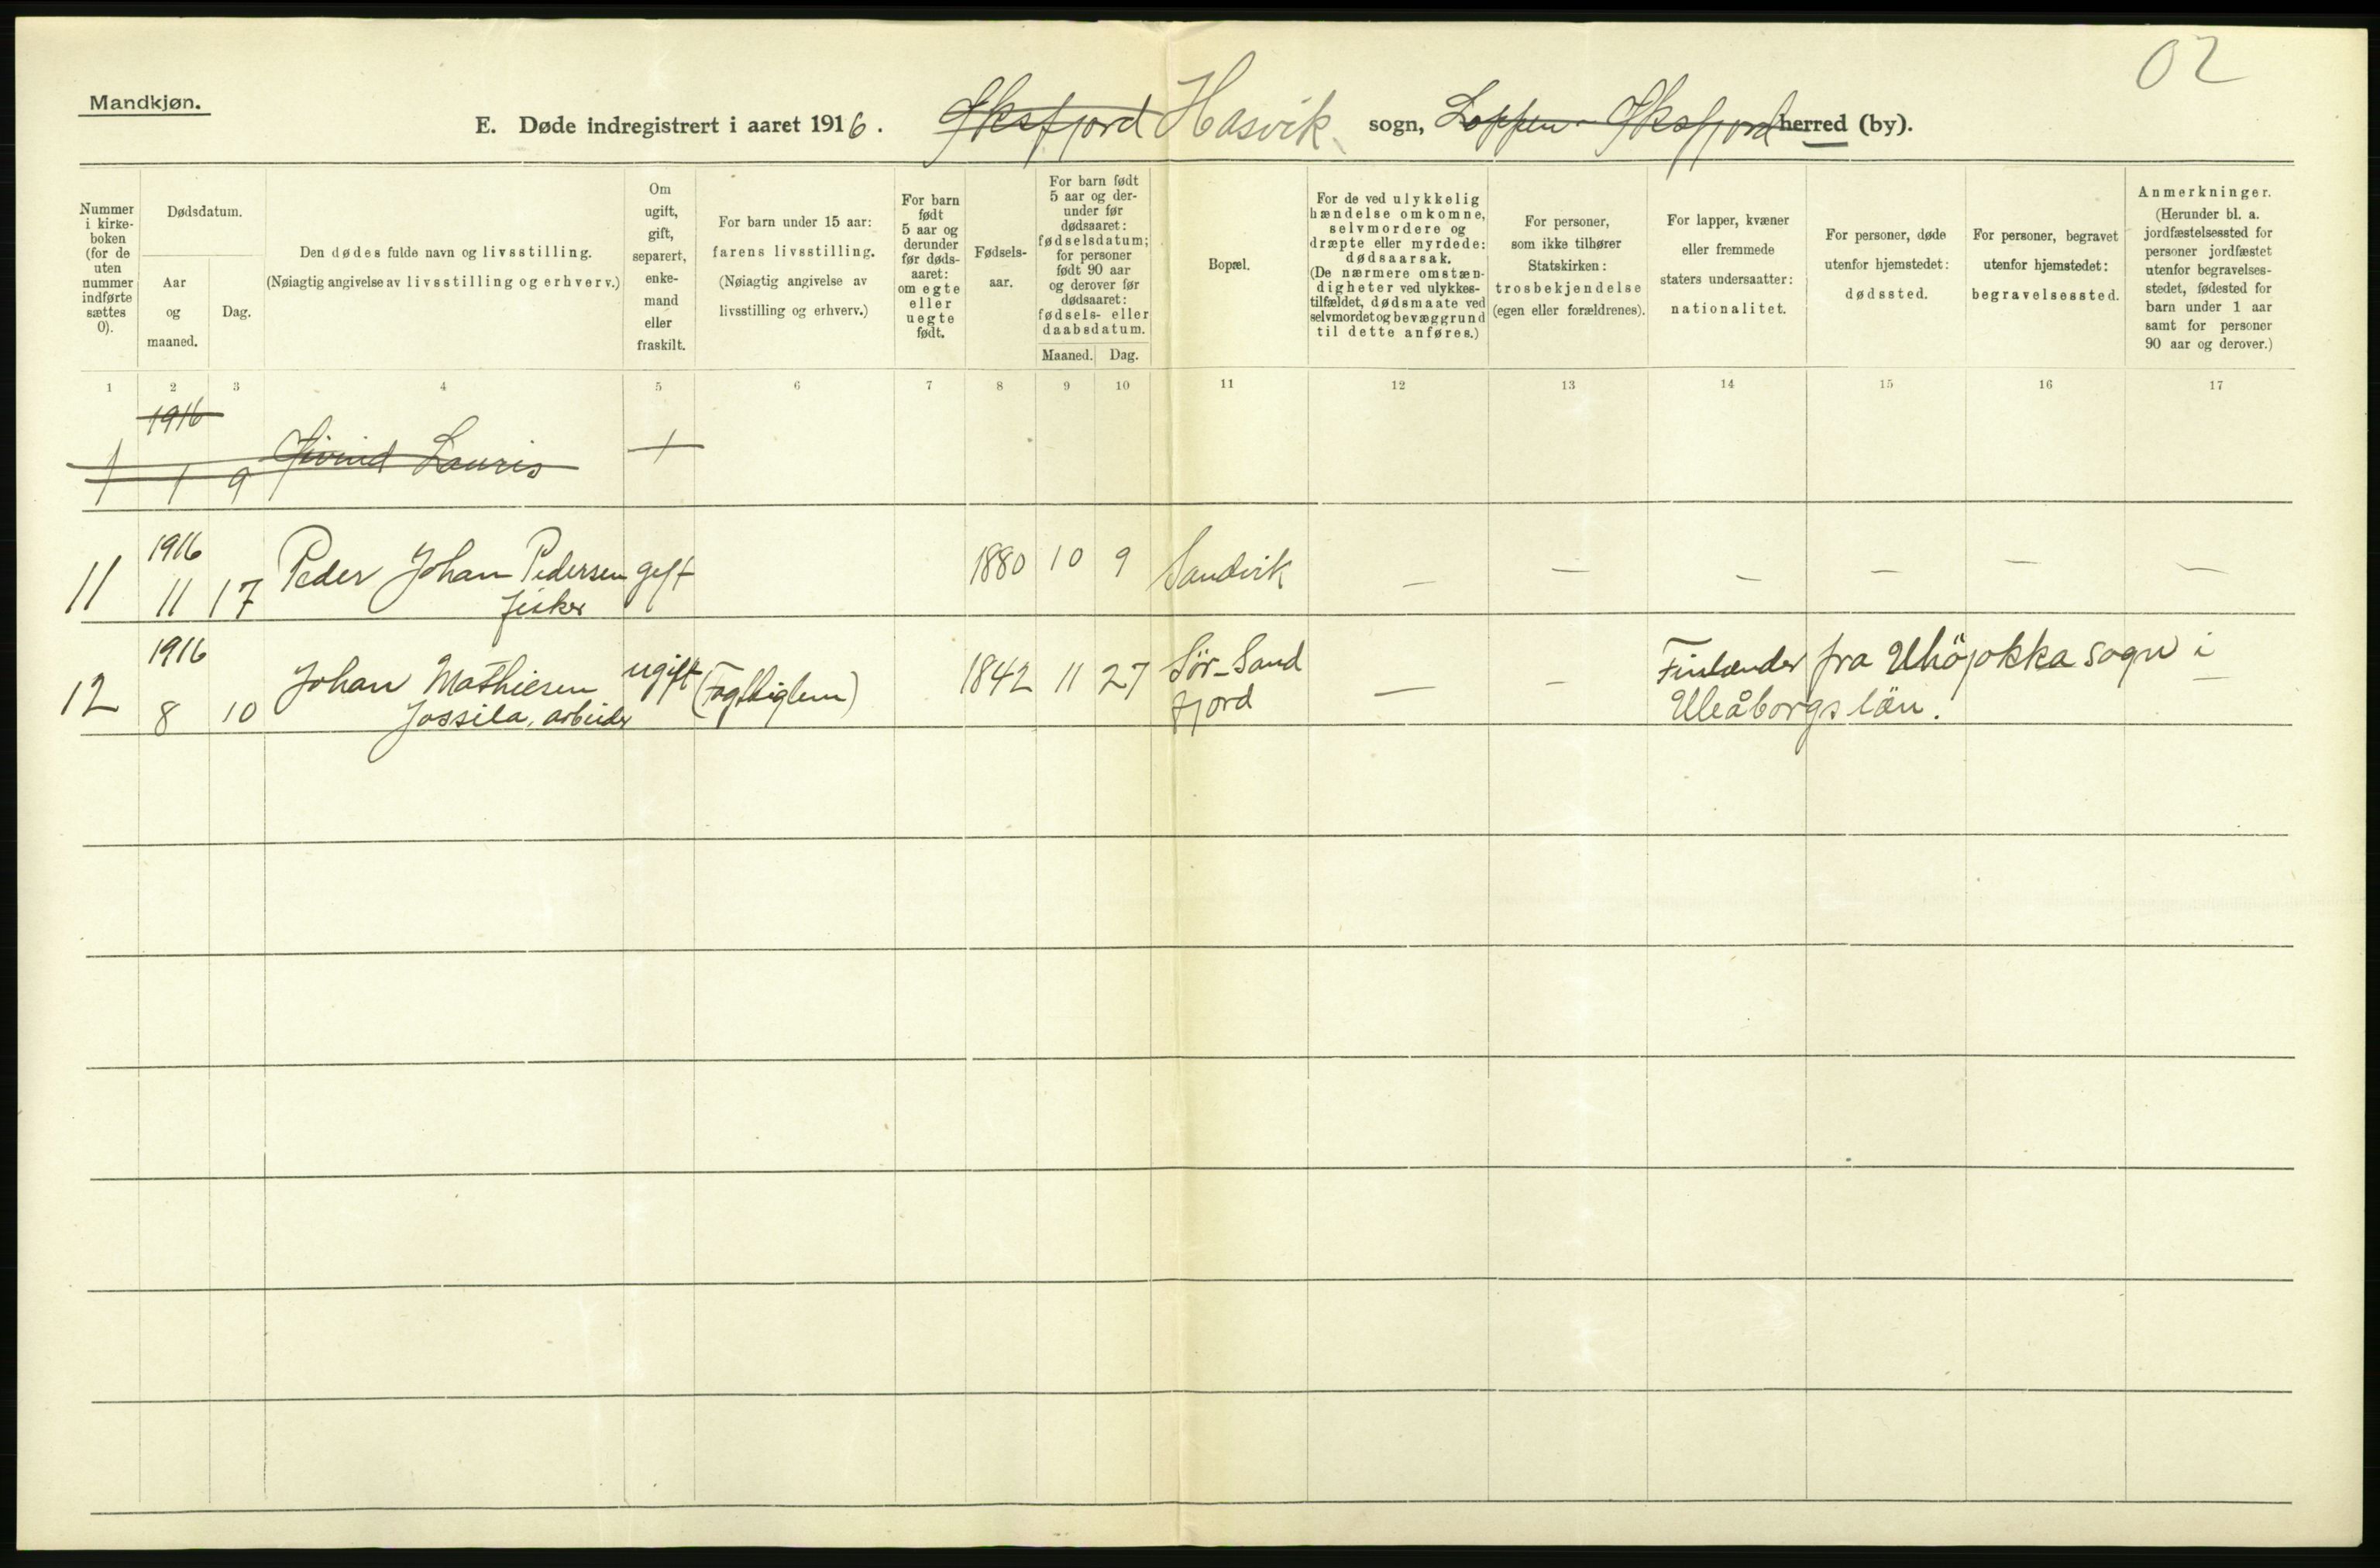 02
Mandkjøn.
E. Døde indregistrert i aaret 1916. Øksfjord Hasvik sogn, Loppen Øksfjord herred (by).
Nummer i kirke-boken (for de uten nummer indførte sættes 0).
Dødsdatum.
Aar og maaned.
Dag.
Den dødes fulde navn og livsstilling.
(Nøiagtig angivelse av livsstilling og erhverv.)
Om ugift, gift, separert, enke-mand eller fraskilt.
For barn under 15 aar:
farens livsstilling.
(Nøiagtig angivelse av livsstilling og erhverv.)
For barn født 5 aar og derunder før døds-aaret: om egte eller uegte født.
Fødsels-aar.
For barn født 5 aar og der-under før dødsaaret: fødselsdatum; for personer født 90 aar og derover før dødsaaret: fødsels- eller daabsdatum.
Maaned. Dag.
Bopæl.
For de ved ulykkelig hændelse omkomne, selvmordere og dræpte eller myrdede: dødsaarsak.
(De nærmere omstæn-digheter ved ulykkes-tilfældet, dødsmaate ved selvmordet og bevæggrund til dette anføres.)
For personer, som ikke tilhører Statskirken:
trosbekjendelse
(egen eller forældrenes).
For lapper, kvæner eller fremmede staters undersaatter:
nationalitet.
For personer, døde utenfor hjemstedet:
dødssted.
For personer, begravet utenfor hjemstedet:
begravelsessted.
Anmerkninger.
(Herunder bl. a. jordfæstelsessted for personer jordfæstet utenfor begravelses-stedet, fødested for barn under 1 aar samt for personer 90 aar og derover.)
1 2 3 4 5 6 7 8 9 10 11 12 13 14 15 16 17
1916
1 1 9 Øivind Lauris
1916
11 11 17 Peder Johan Pedersen gift 1880 10 9 Sandvik — — — — — —
fisker
1916
12 8 10 Johan Mathiesen ugift 1842 11 27 Sör-Sand — — Finlænder fra sogn i —
Jossila, arbeider fjord Uleåborgs län.